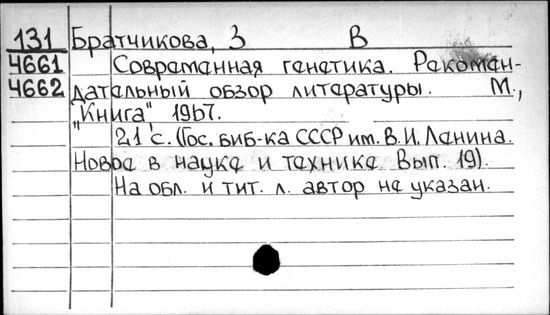 131 Братчикова, З В
4661 Современная генетика. Рекомен-
4662 дательный обзор литературы. М.,
"Книга", 1967.
21 с. (Гос. биб-ка СССР им. В.И. Ленина.
Новое в науке и технике Вып. 19).
На обл. и тит. л. автор не указан.